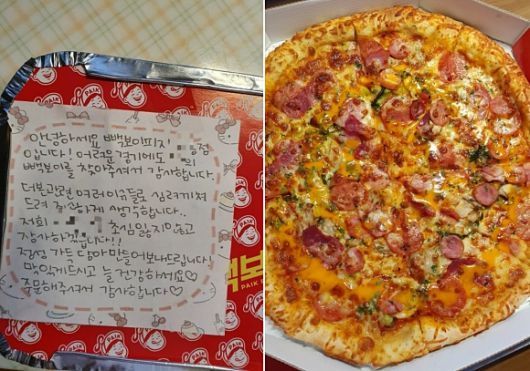 안녕하세요 빽보이피자
입니다! 어려운 경기에도 점
빽보이를 찾아주셔서 감사합니다.
더본코리아 여러이슈들로 심려끼쳐
드려 죄송하게 생각합니다..
저희 초심 잃지않고
장사하겠습니다!!
정성 가득 담아 만들어보내드립니다!
맛있게드시고 늘 건강하세요♡
주문해주셔서 감사합니다♡
PAIK